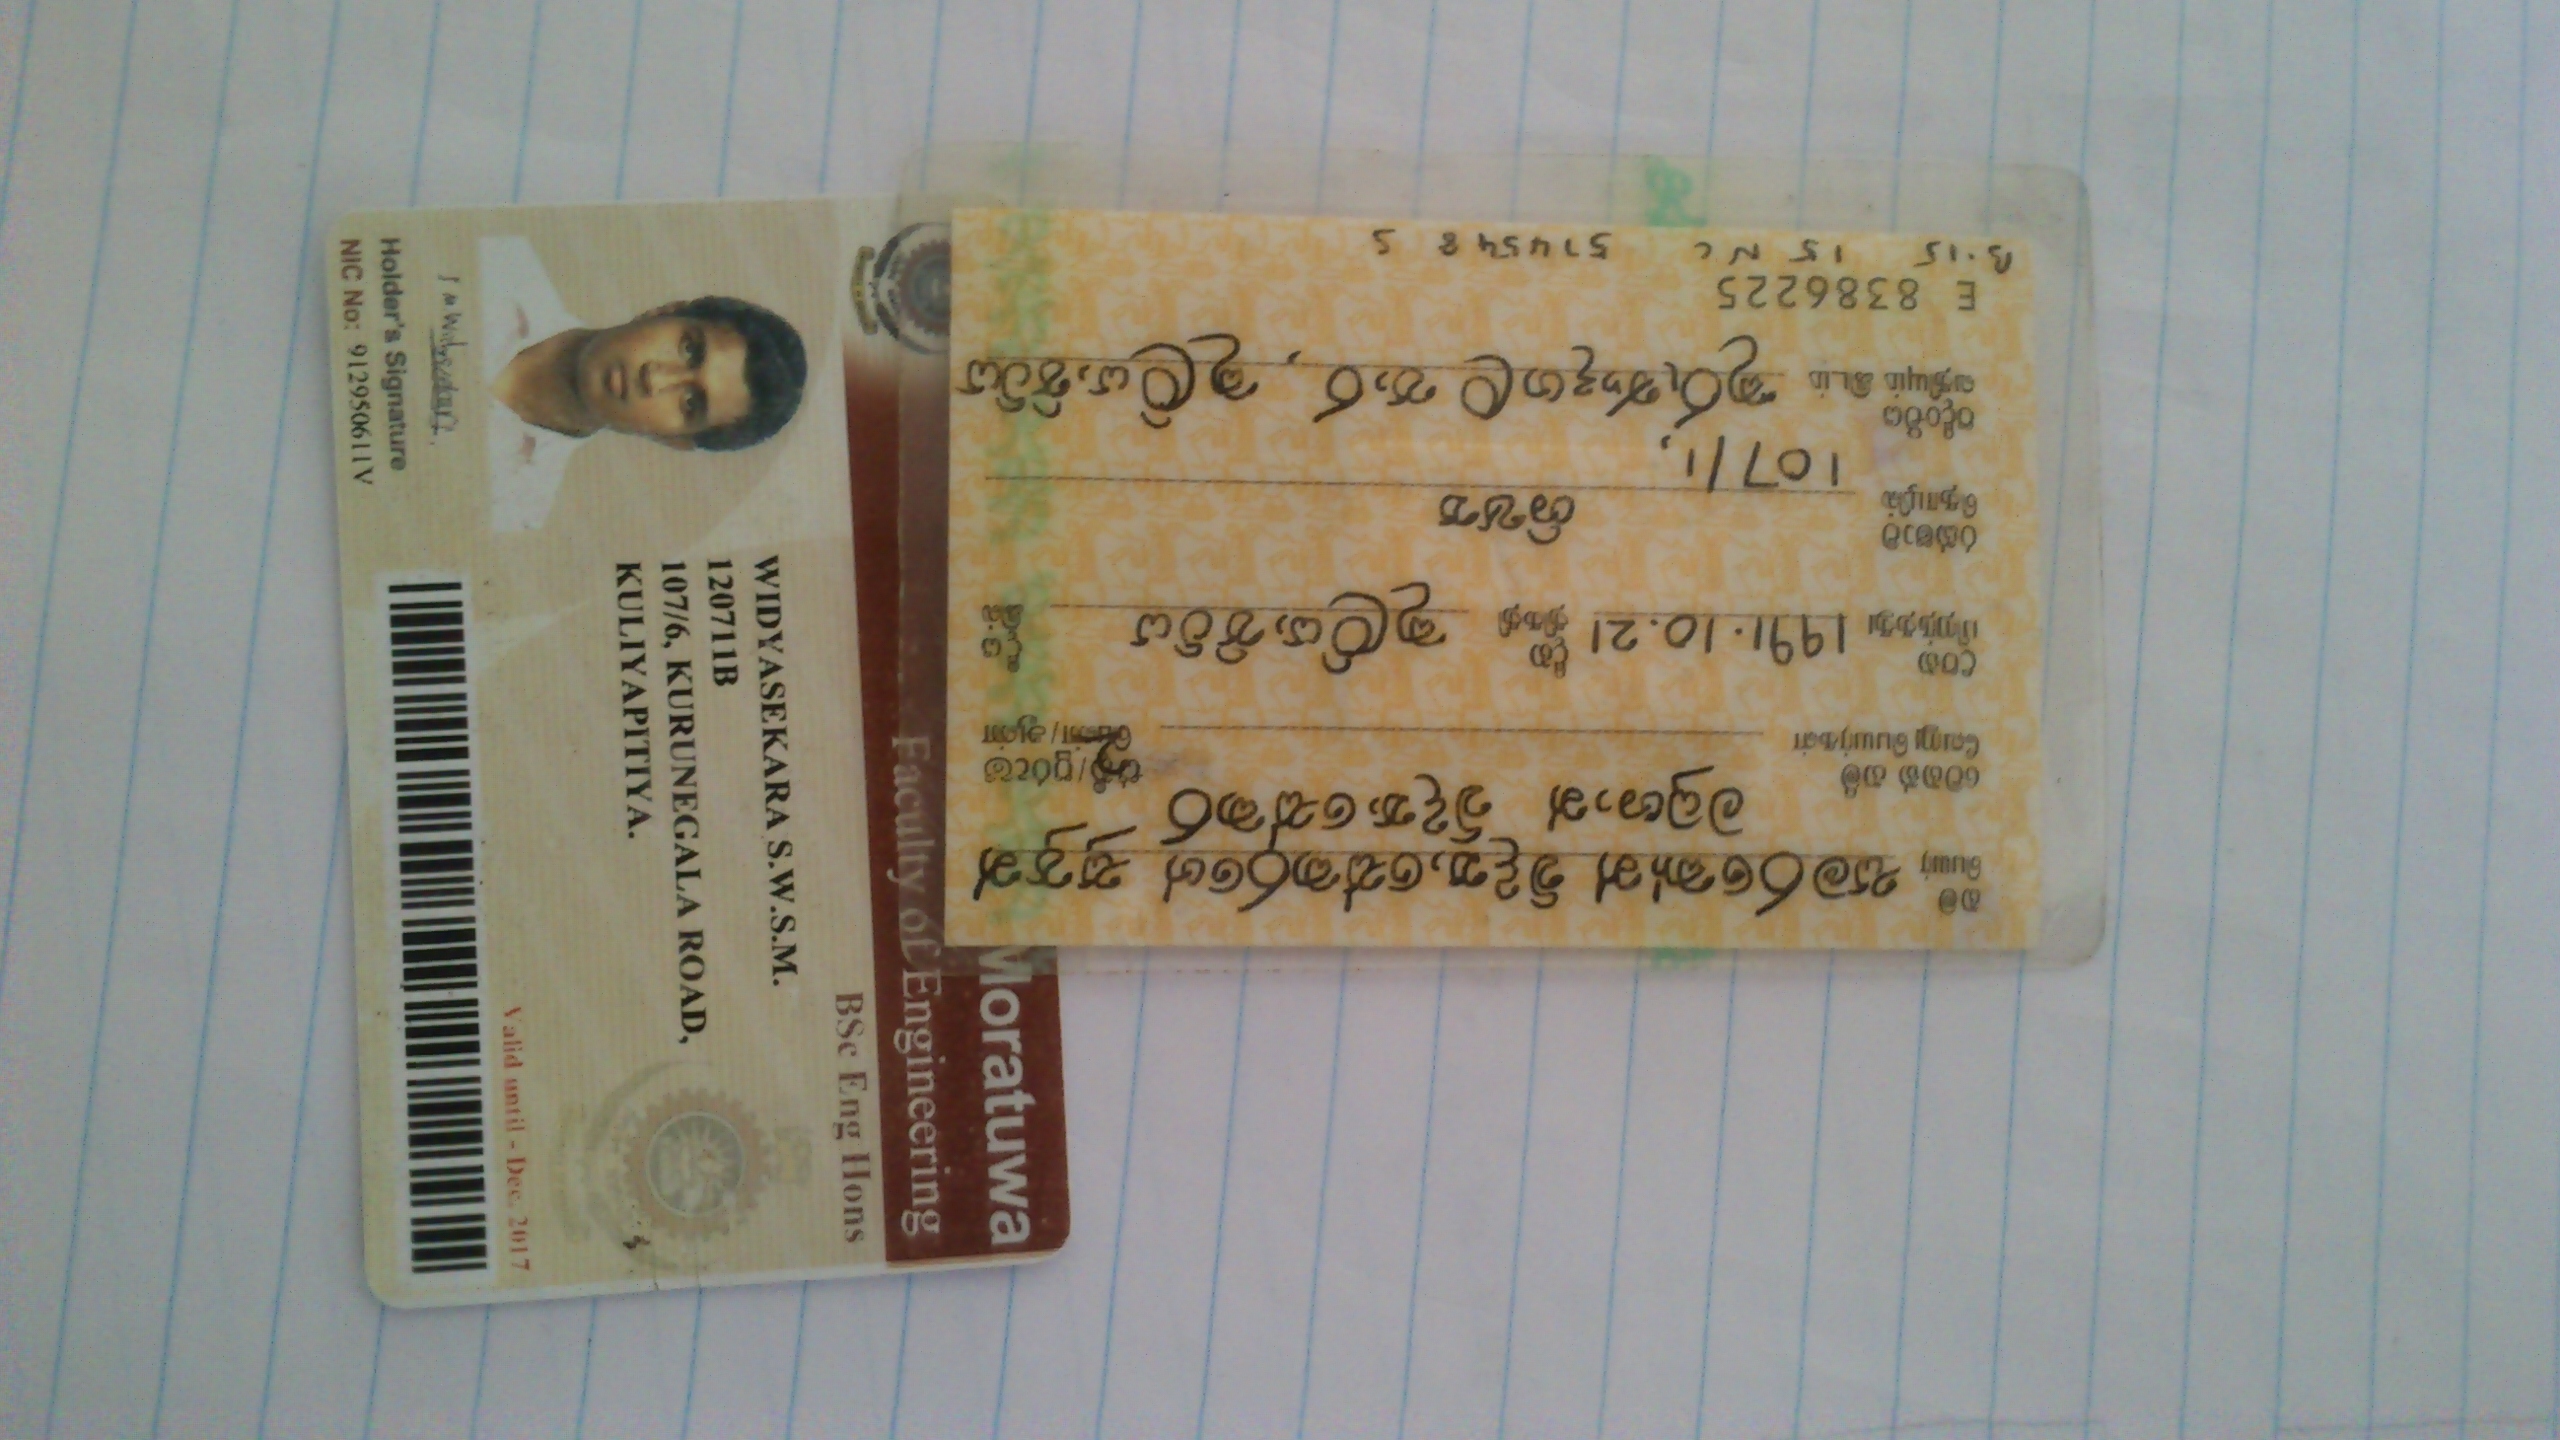 නම
பெயர் සමරකෝන් විද්‍යාසේකරගේ සුපුන්
මධුශාන් විද්‍යාසේකර
වෙනත් නම්
வேறு பெயர்கள்
ස්ත්‍රී/පුරුෂ
பெண்/ஆண்
උපන්
பிறந்தது 1991.10.21 දින
திகதி කුලියාපිටිය
රක්ෂාව
தொழில் ශිෂ්‍ය
107/1,
පදිංචිය
வதியும் இடம் කුරුණෑගල පාර, කුලියාපිටිය
E 8386225
B.15 15 NC 574548 S
Moratuwa
Faculty of Engineering
BSc Eng Hons
WIDYASEKARA S.W.S.M.
120711B
107/6, KURUNEGALA ROAD,
KULIYAPITIYA.
Valid until - Dec. 2017
Holder's Signature
NIC No: 912950611V